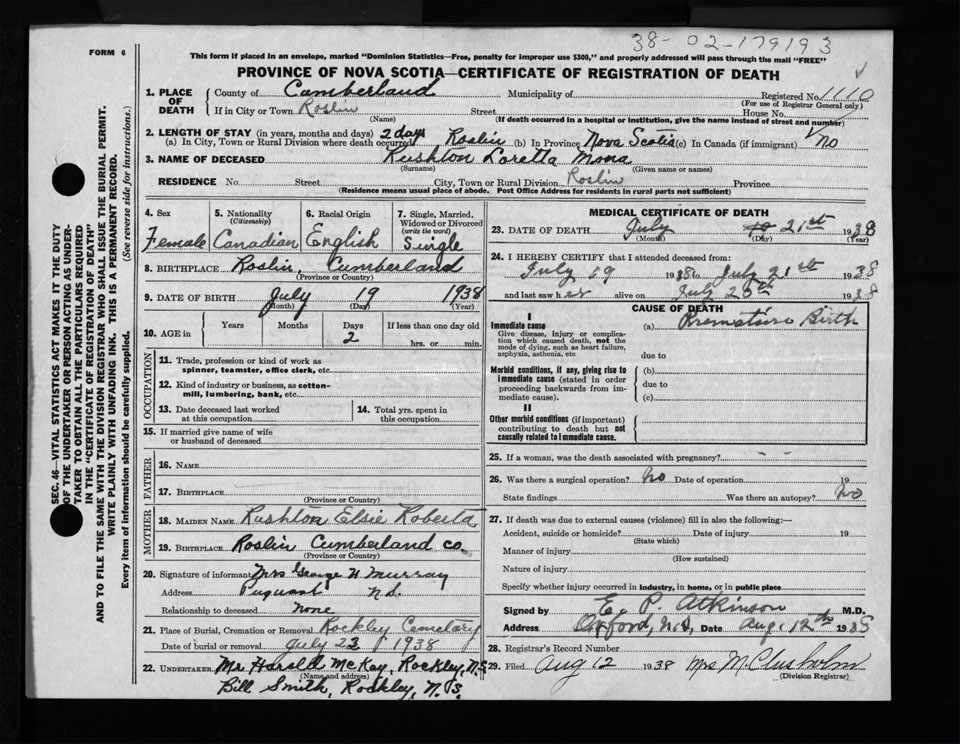 38-02-179193
FORM 6
This form if placed in an envelope, marked "Dominion Statistics—Free, penalty for improper use $300," and properly addressed will pass through the mail "FREE"
PROVINCE OF NOVA SCOTIA—CERTIFICATE OF REGISTRATION OF DEATH
1. PLACE OF DEATH
County of Cumberland Municipality of Registered No. 1110
(For use of Registrar General only)
If in City or Town Roslin Street House No.
(Name) (If death occurred in a hospital or institution, give the name instead of street and number)
2. LENGTH OF STAY (in years, months and days) 2 days
(a) In City, Town or Rural Division where death occurred Roslin (b) In Province Nova Scotia (c) In Canada (if immigrant) No
3. NAME OF DECEASED Rushton Loretta Mona
(Surname) (Given name or names)
RESIDENCE No. Street City, Town or Rural Division Roslin Province
(Residence means usual place of abode. Post Office Address for residents in rural parts not sufficient)
4. Sex
Female
5. Nationality
(Citizenship)
Canadian
6. Racial Origin
English
7. Single, Married, Widowed or Divorced
(write the word)
Single
8. BIRTHPLACE Roslin, Cumberland
9. DATE OF BIRTH July 19 1938
(Month) (Day) (Year)
10. AGE in
Years Months Days If less than one day old
2 hrs. or min.
OCCUPATION
11. Trade, profession or kind of work as
spinner, teamster, office clerk, etc.
12. Kind of industry or business, as cotton-
mill, lumbering, bank, etc.
13. Date deceased last worked
at this occupation
14. Total yrs. spent in
this occupation
15. If married give name of wife
or husband of deceased
FATHER
16. NAME
17. BIRTHPLACE
(Province or Country)
MOTHER
18. MAIDEN NAME Rushton Elsie Roberta
19. BIRTHPLACE Roslin Cumberland Co.
(Province or Country)
20. Signature of informant Mrs George H Murray
Address Pugwash N.S.
Relationship to deceased None
21. Place of Burial, Cremation or Removal Rockley Cemetary
Date of burial or removal July 23 1938
22. UNDERTAKER Mr Harold McKay, Rockley, N.S.
(Name and address)
Bill Smith, Rockley, N.S.
MEDICAL CERTIFICATE OF DEATH
23. DATE OF DEATH July 21st 1938
(Month) (Day) (Year)
24. I HEREBY CERTIFY that I attended deceased from:
July 19 1938 to July 21st 1938
and last saw her alive on July 20th 1938
CAUSE OF DEATH
I
Immediate cause
Give disease, injury or complica-
tion which caused death, not the
mode of dying, such as heart failure,
asphyxia, asthenia, etc
(a) Premature Birth
due to
Morbid conditions, if any, giving rise to
immediate cause (stated in order
proceeding backwards from im-
mediate cause).
(b)
due to
(c)
II
Other morbid conditions (if important)
contributing to death but not
causally related to immediate cause.
25. If a woman, was the death associated with pregnancy?
26. Was there a surgical operation? No Date of operation 19
State findings Was there an autopsy? No
27. If death was due to external causes (violence) fill in also the following:—
Accident, suicide or homicide? Date of injury 19
(State which)
Manner of injury
(How sustained)
Nature of injury
Specify whether injury occurred in industry, in home, or in public place
Signed by E. P. Atkinson M.D.
Address Oxford, N.S. Date Aug. 12th 1938
28. Registrar's Record Number
29. Filed Aug 12 1938 Mrs M Chisholm
(Division Registrar)
SEC. 46—VITAL STATISTICS ACT MAKES IT THE DUTY
OF THE UNDERTAKER OR PERSON ACTING AS UNDER-
TAKER TO OBTAIN ALL THE PARTICULARS REQUIRED
IN THE "CERTIFICATE OF REGISTRATION OF DEATH"
AND TO FILE THE SAME WITH THE DIVISION REGISTRAR WHO SHALL ISSUE THE BURIAL PERMIT.
WRITE PLAINLY WITH UNFADING INK. THIS IS A PERMANENT RECORD.
Every item of information should be carefully supplied. (See reverse side for instructions.)